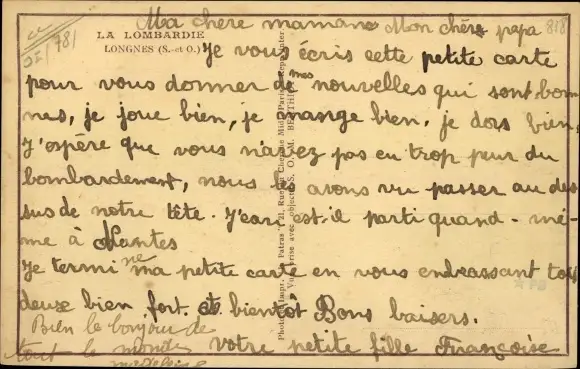 Ma chère maman Mon chèr papa 818
OI/781
LA LOMBARDIE
LONGNES (S.-et-O.)
Je vous écris cette petite carte
pour vous donner de mes nouvelles qui sont bon
nes, je joue bien, je mange bien, je dors bien,
J'espère que vous n'avez pas eu trop peur du
bombardement, nous les avons vu passer au des
sus de notre tête. J'ean est-il parti quand-mê-
me à Nantes
Je termine ma petite carte en vous embrassant tous
deux bien fort. et bientôt Bons baisers.
Bien le bonjour de
votre petite fille Françoise
tout le monde